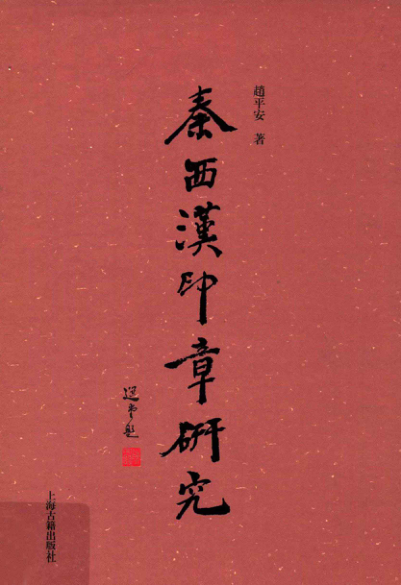 趙平安 著
秦西漢印章研究
選堂題
上海古籍出版社